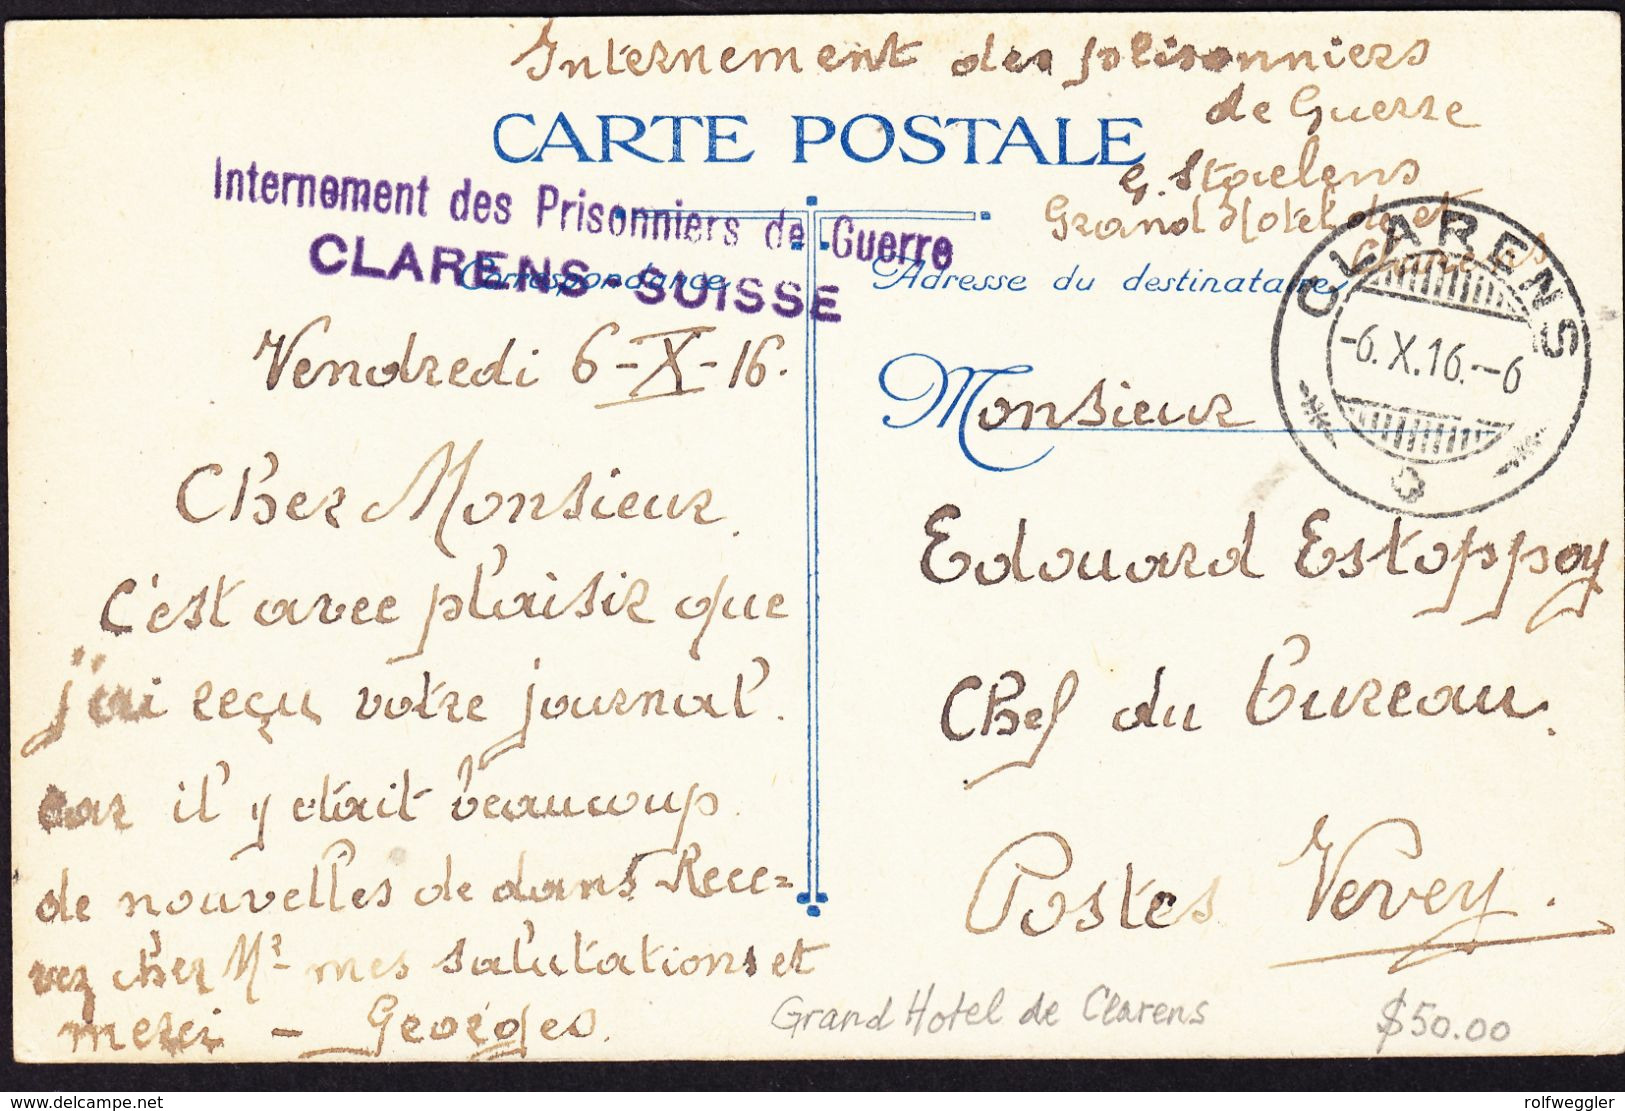 Internement des prisonniers
de Guerre
G. Staelens
Grand Hotel de et
CARTE POSTALE
Internement des Prisonniers de Guerre
CLARENS-SUISSE
Correspondance
Adresse du destinataire
CLARENS
-6.X.16.-6
Vendredi 6-X-16.
Cher Monsieur.
C'est avec plaisir que
j'ai reçu votre journal.
car il y etait beaucoup
de nouvelles de dans Rece=
vez cher Mr mes salutations et
merci - Georges.
Monsieur
Edouard Estoppey
Chef du bureau.
Postes Vevey.
Grand Hotel de Clarens
$50.00
www.delcampe.net
rolfweggler